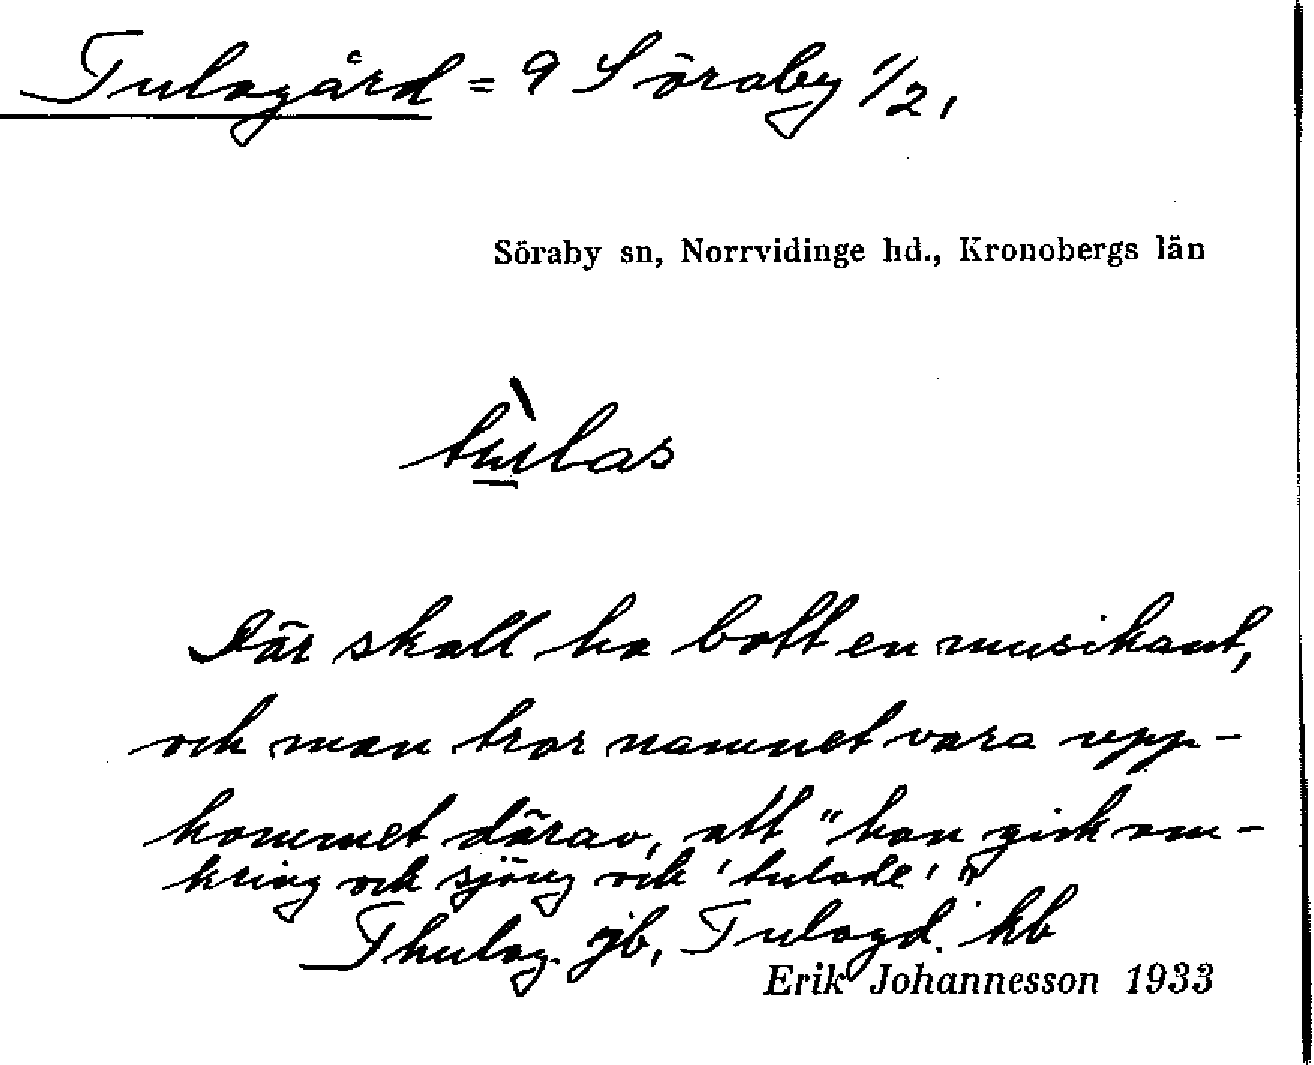 Tulagård = 9 Söraby 1/2,
Söraby sn, Norrvidinge hd., Kronobergs län
Där skall ha bott en musikant,
och man tror namnet vara upp-
kommet därav, att "han gick om-
kring och sjöng och 'tulade'."
Thulag. jb, Tulagd. kb
Erik Johannesson 1933